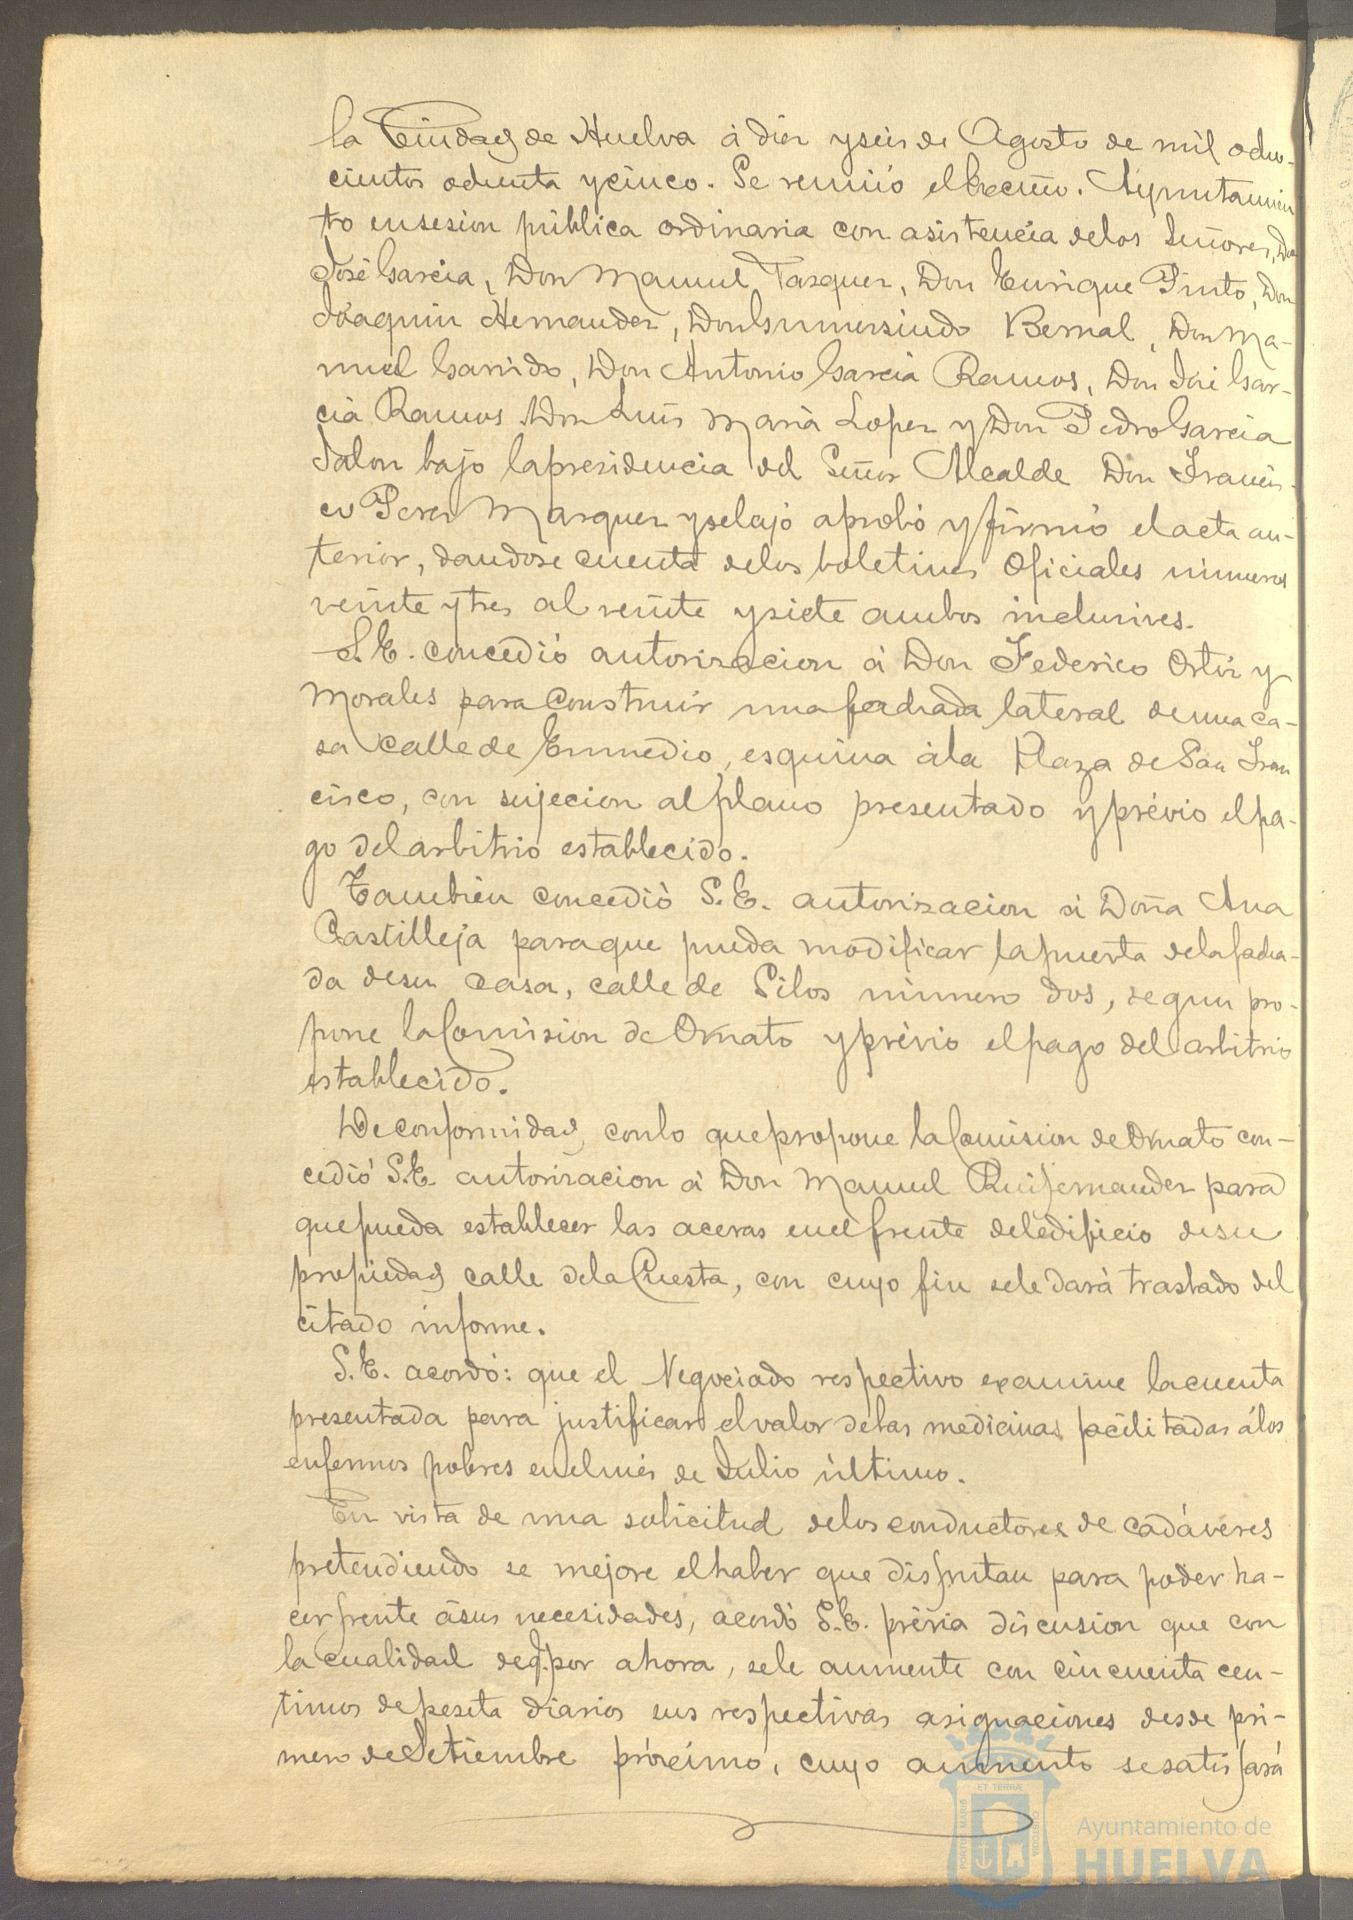 la Ciudad de Huelva á diez y seis de Agosto de mil ocho-
cientos ochenta y cinco. Se reunió el Excmo. Ayuntamien
to en sesion pública ordinaria con asistencia de los Señores, Don
José Garcia, Don Manuel Vazquez, Don Enrique Pinto, Don
Joaquin Hernandez, Don Gumersindo Bernal, Don Ma-
nuel Garrido, Don Antonio Garcia Ramos, Don José Gar-
cia Ramos Don Luis Maria Lopez y Don Pedro Garcia
Jalon bajo la presidencia del Señor Alcalde Don Francis-
co Perez Marquez y se lajó aprobó y firmó el acta an-
terior, dandose cuenta de los boletines Oficiales numeros
veinte y tres al veinte y siete ambos inclusives.
S.E. concedió autorizacion á Don Federico Ortiz y
Morales para construir una fachada lateral de una ca-
sa calle de Enmedio, esquina á la Plaza de San Fran
cisco, con sujecion al plano presentado y prévio el pa-
go del arbitrio establecido.
Tambien concedió S.E. autorizacion á Doña Ana
Castilleja para que pueda modificar la puerta de la facha-
da de su casa, calle de Silos número dos, segun pro-
pone la Comision de Ornato y prévio el pago del arbitrio
establecido.
De conformidad con lo que propone la Comision de Ornato con-
cedió S.E. autorizacion á Don Manuel Ruifernandez para
que pueda establecer las aceras en el frente del edificio de su
propiedad calle de la Cuesta, con cuyo fin se le dará traslado del
citado informe.
S.E. acordó: que el Negociado respectivo examine la cuenta
presentada para justificar el valor de las medicinas facilitadas á los
enfermos pobres en el mes de Julio último.
En vista de una solicitud de los conductores de cadáveres
pretendiendo se mejore el haber que disfrutan para poder ha-
cer frente á sus necesidades, acordó S.E. prévia discusion que con
la cualidad de por ahora, se le aumente con cincuenta cen-
timos de peseta diarios sus respectivas asignaciones desde pri-
mero de Setiembre próximo, cuyo aumento se satisfará
PORTUS MARIS
ET TERRÆ
CUSTODIA
Ayuntamiento de
HUELVA